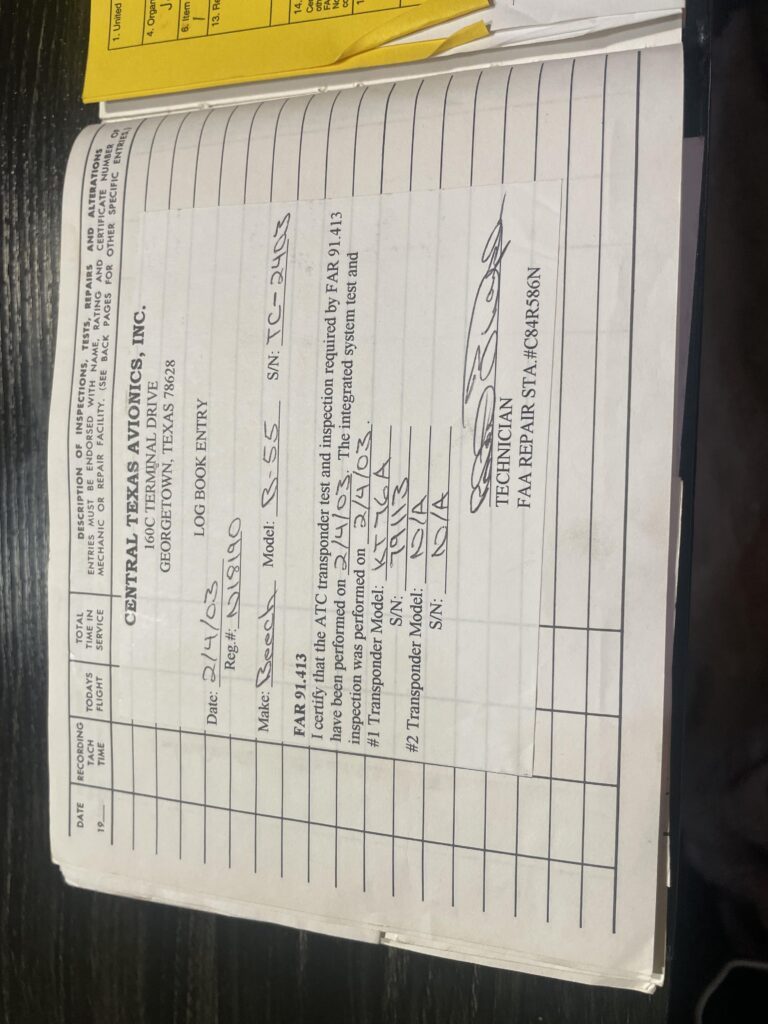 DATE
19
RECORDING
TACH
TIME
TODAYS
FLIGHT
TOTAL
TIME IN
SERVICE
DESCRIPTION OF INSPECTIONS, TESTS, REPAIRS AND ALTERATIONS
ENTRIES MUST BE ENDORSED WITH NAME, RATING AND CERTIFICATE NUMBER OF
MECHANIC OR REPAIR FACILITY. (SEE BACK PAGES FOR OTHER SPECIFIC ENTRIES.)
CENTRAL TEXAS AVIONICS, INC.
160C TERMINAL DRIVE
GEORGETOWN, TEXAS 78628
LOG BOOK ENTRY
Date: 2/4/03
Reg.#: N18190
Make: Beech Model: B-55 S/N: TC-2403
FAR 91.413
I certify that the ATC transponder test and inspection required by FAR 91.413
have been performed on 2/4/03. The integrated system test and
inspection was performed on 2/4/03.
#1 Transponder Model: KT76A
S/N: 79113
#2 Transponder Model: N/A
S/N: N/A
TECHNICIAN
FAA REPAIR STA.#C84R586N
1. United
4. Organ
6. Item
1
13. Re
14.